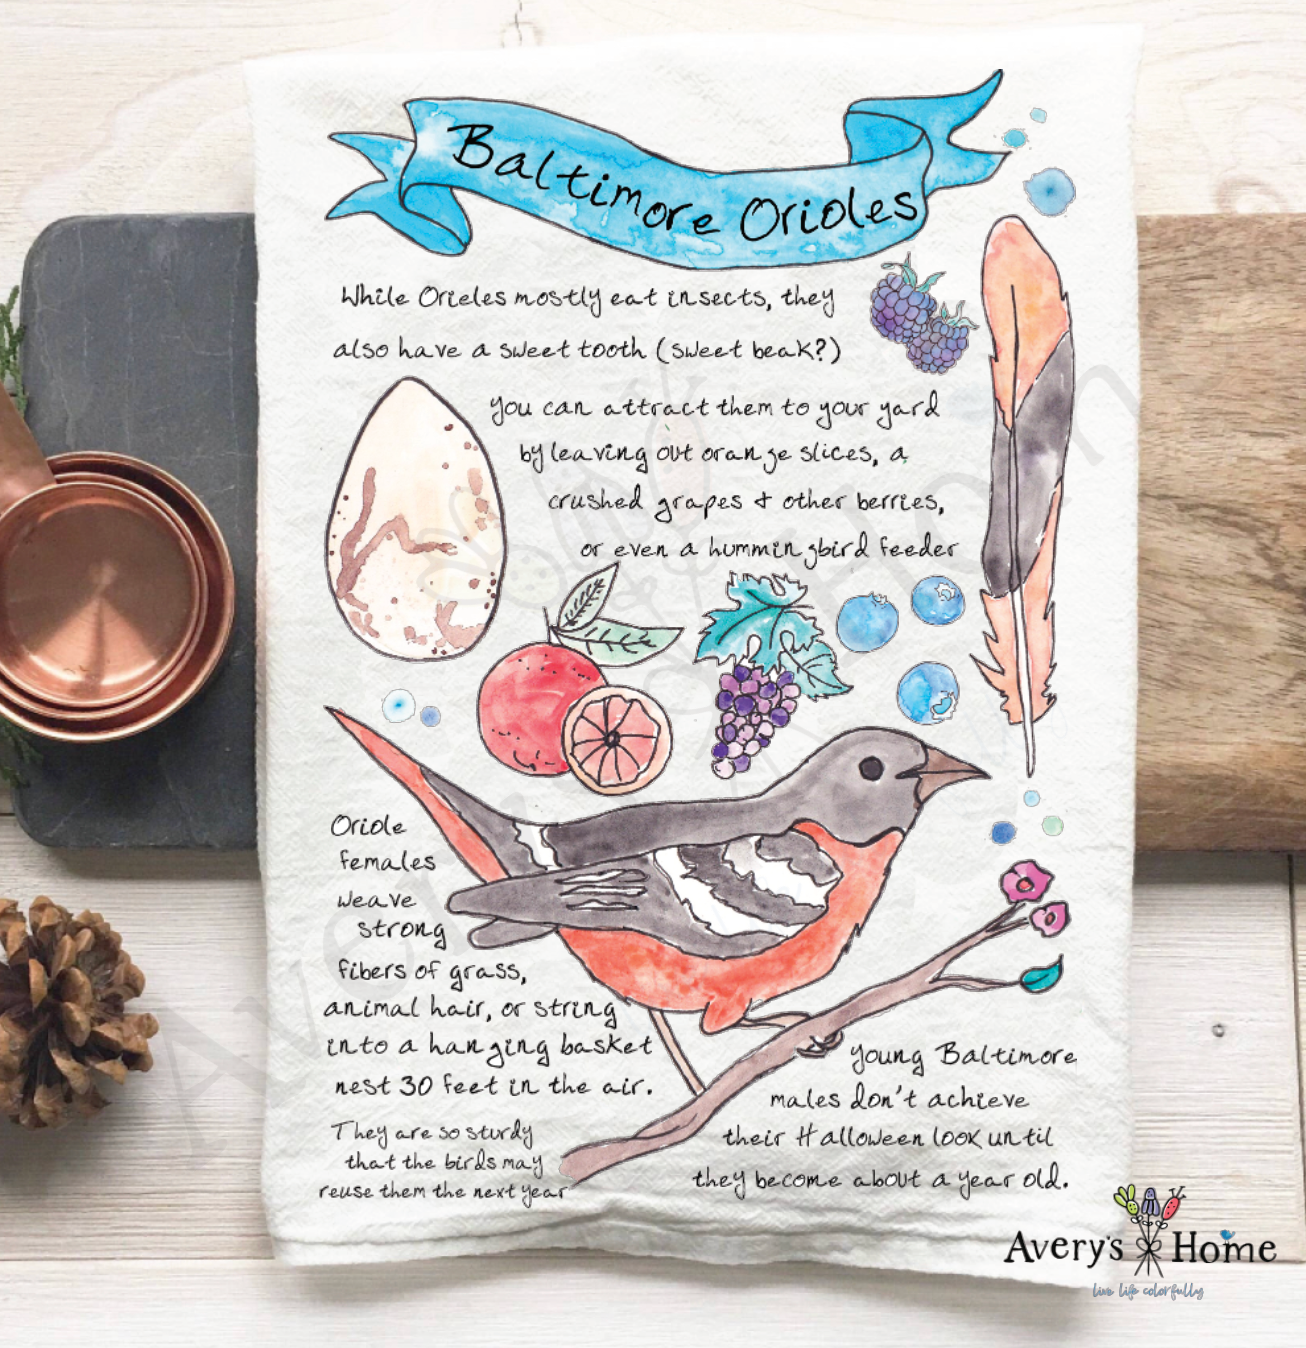 Baltimore Orioles
While Orieles mostly eat insects, they
also have a sweet tooth (sweet beak?)
You can attract them to your yard
by leaving out orange slices, a
crushed grapes & other berries,
or even a hummingbird feeder
Oriole
females
weave
strong
fibers of grass,
animal hair, or string
into a hanging basket
nest 30 feet in the air.
They are so sturdy
that the birds may
reuse them the next year
Young Baltimore
males don't achieve
their Halloween look until
they become about a year old.
Avery's Home
live life colorfully
Avery's Home